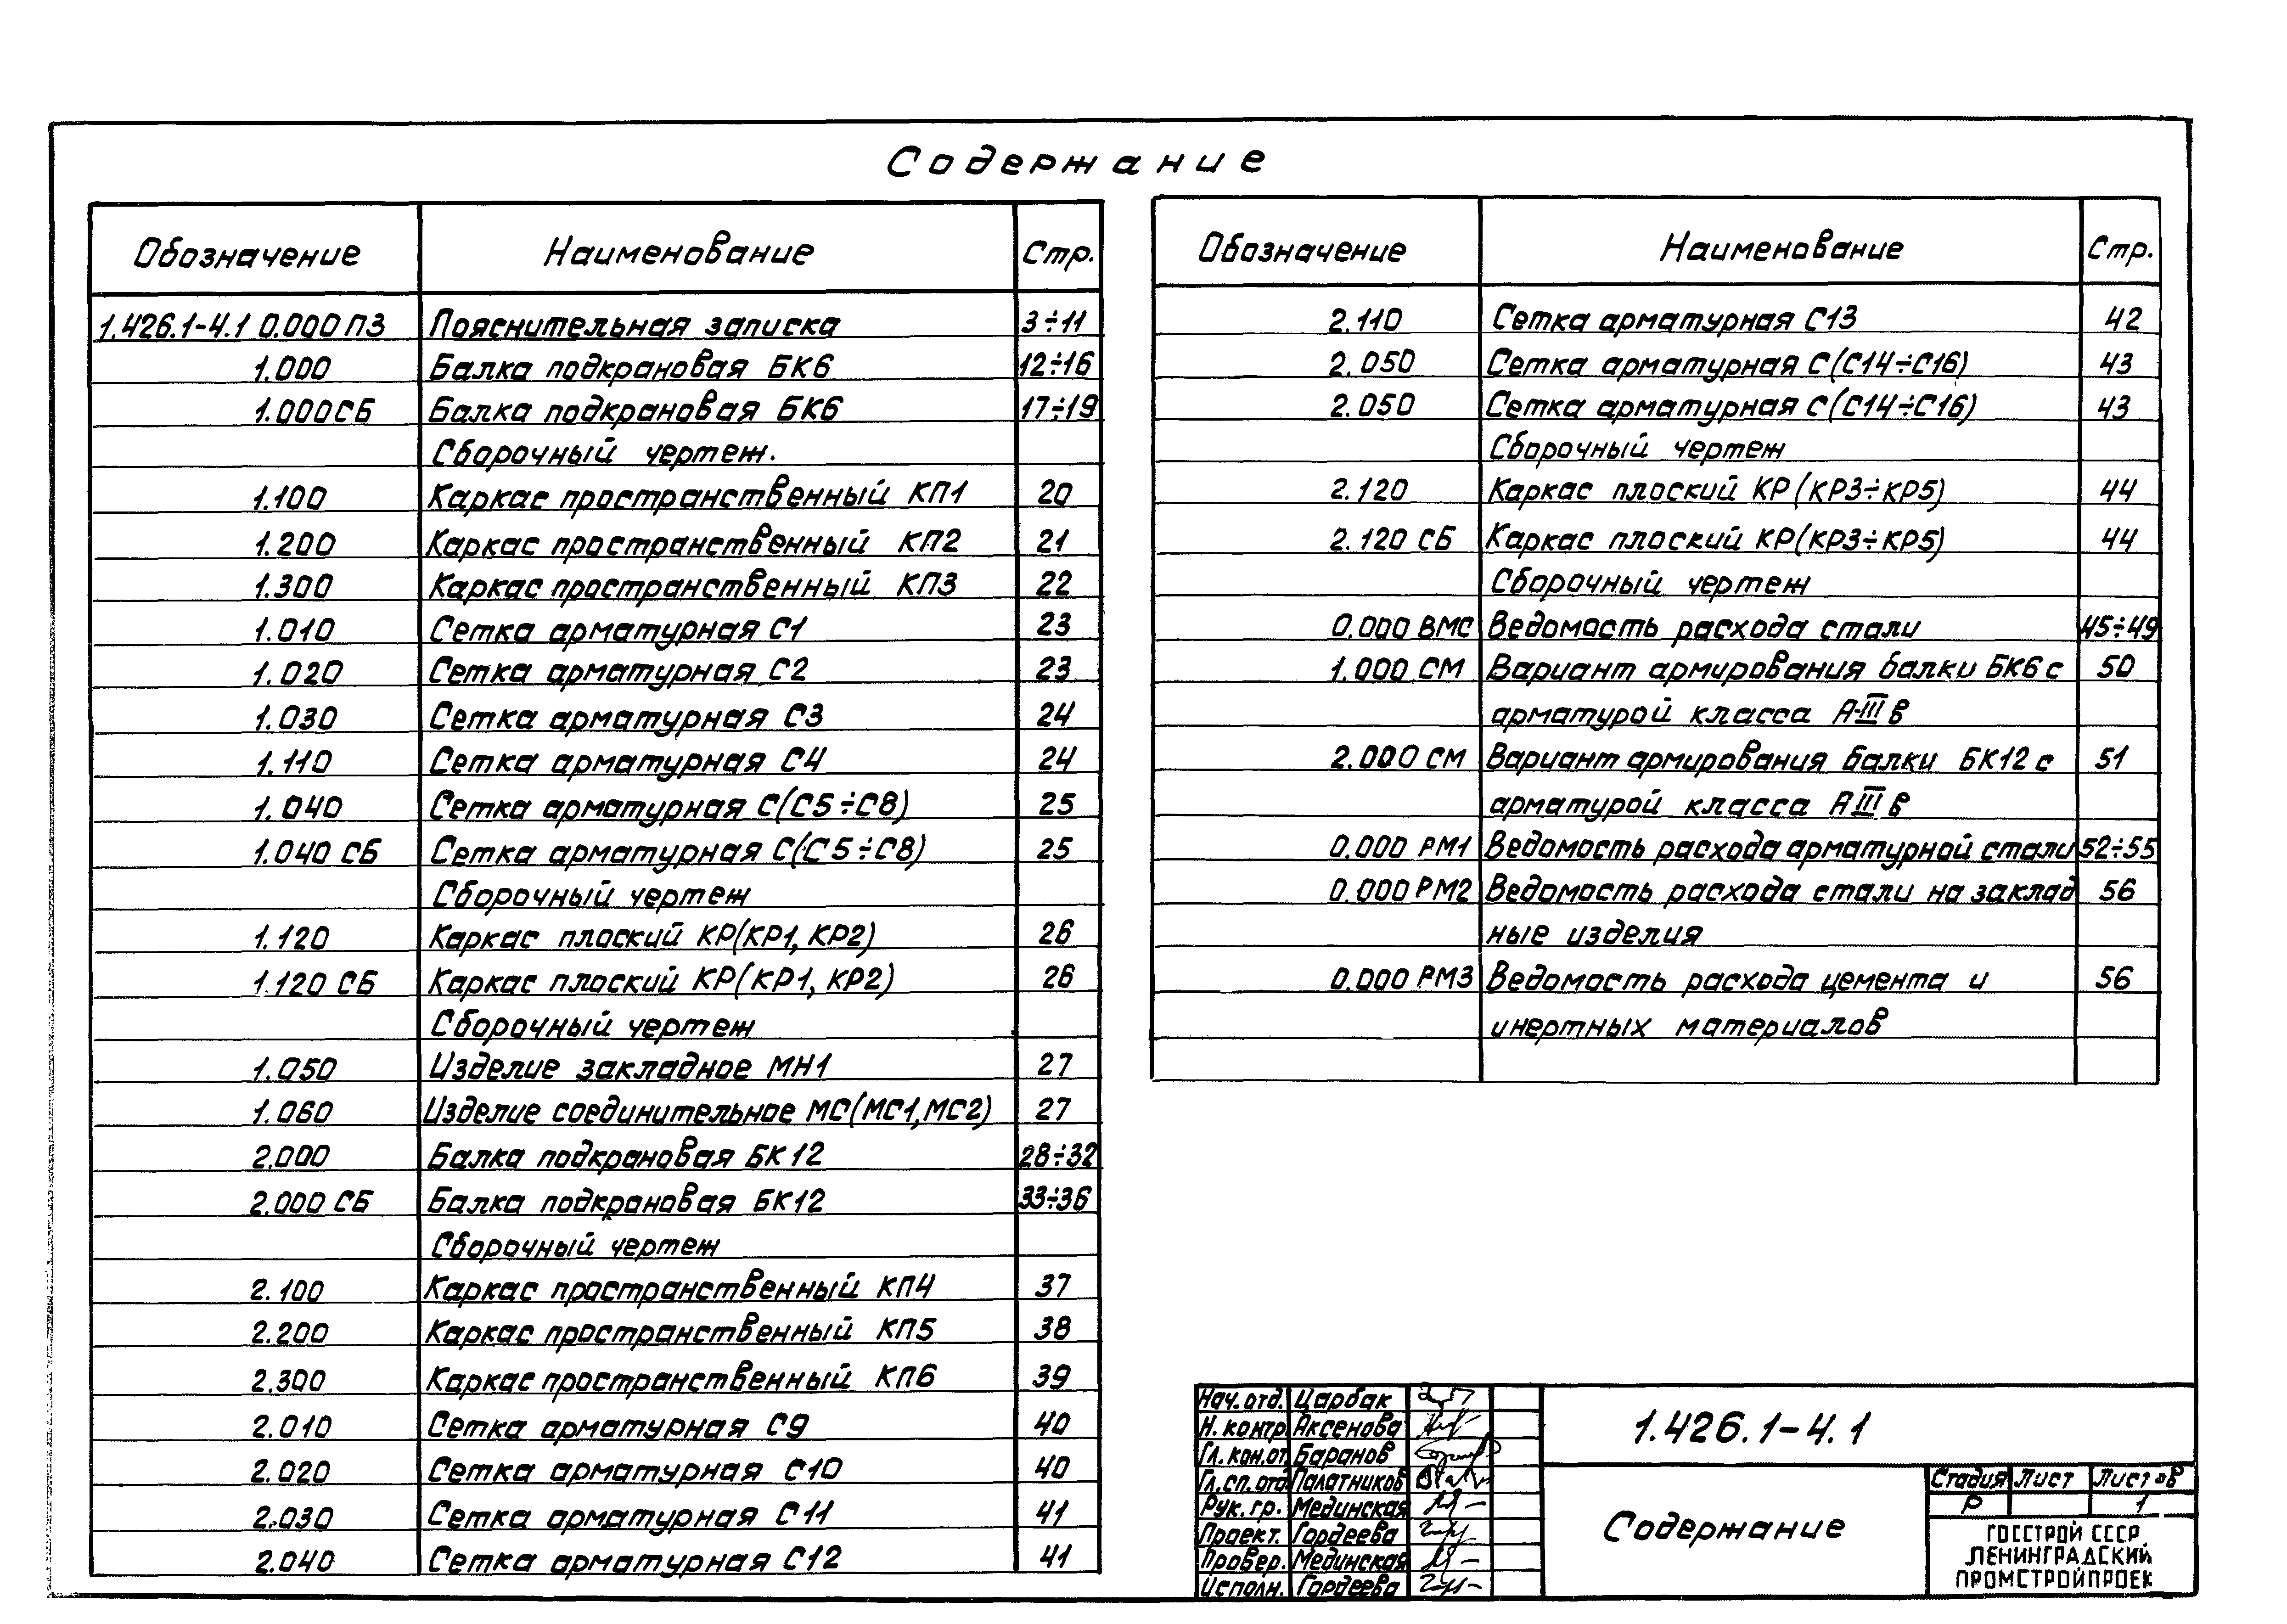 Содержание
Обозначение Наименование Стр.
1.426.1-4.1 0.000 ПЗ Пояснительная записка 3÷11
1.000 Балка подкрановая БК6 12÷16
1.000СБ Балка подкрановая БК6 17÷19
Сборочный чертеж.
1.100 Каркас пространственный КП1 20
1.200 Каркас пространственный КП2 21
1.300 Каркас пространственный КП3 22
1.010 Сетка арматурная С1 23
1.020 Сетка арматурная С2 23
1.030 Сетка арматурная С3 24
1.110 Сетка арматурная С4 24
1.040 Сетка арматурная С(С5÷С8) 25
1.040 СБ Сетка арматурная С(С5÷С8) 25
Сборочный чертеж
1.120 Каркас плоский КР(КР1, КР2) 26
1.120 СБ Каркас плоский КР(КР1, КР2) 26
Сборочный чертеж
1.050 Изделие закладное МН1 27
1.060 Изделие соединительное МС(МС1, МС2) 27
2.000 Балка подкрановая БК12 28÷32
2.000 СБ Балка подкрановая БК12 33÷36
Сборочный чертеж
2.100 Каркас пространственный КП4 37
2.200 Каркас пространственный КП5 38
2.300 Каркас пространственный КП6 39
2.010 Сетка арматурная С9 40
2.020 Сетка арматурная С10 40
2.030 Сетка арматурная С11 41
2.040 Сетка арматурная С12 41
Обозначение Наименование Стр.
2.110 Сетка арматурная С13 42
2.050 Сетка арматурная С(С14÷С16) 43
2.050 Сетка арматурная С(С14÷С16) 43
Сборочный чертеж
2.120 Каркас плоский КР(КР3÷КР5) 44
2.120 СБ Каркас плоский КР(КР3÷КР5) 44
Сборочный чертеж
0.000 ВМС Ведомость расхода стали 45÷49
1.000 СМ Вариант армирования балки БК6 с 50
арматурой класса А-III в
2.000 СМ Вариант армирования балки БК12 с 51
арматурой класса А III в
0.000 РМ1 Ведомость расхода арматурной стали 52÷55
0.000 РМ2 Ведомость расхода стали на заклад 56
ные изделия
0.000 РМ3 Ведомость расхода цемента и 56
инертных материалов
Нач. отд. Царбак
Н. контр. Аксенова
Гл. кон. от. Баранов
Гл. сп. отд. Палатников
Рук. гр. Мединская
Проект. Гордеева
Провер. Мединская
Исполн. Гордеева
1.426.1-4.1
Содержание
Стадия Лист Листов
Р 1
ГОССТРОЙ СССР
ЛЕНИНГРАДСКИЙ
ПРОМСТРОЙПРОЕК